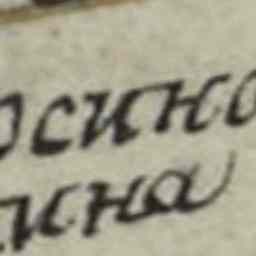 осино
ина